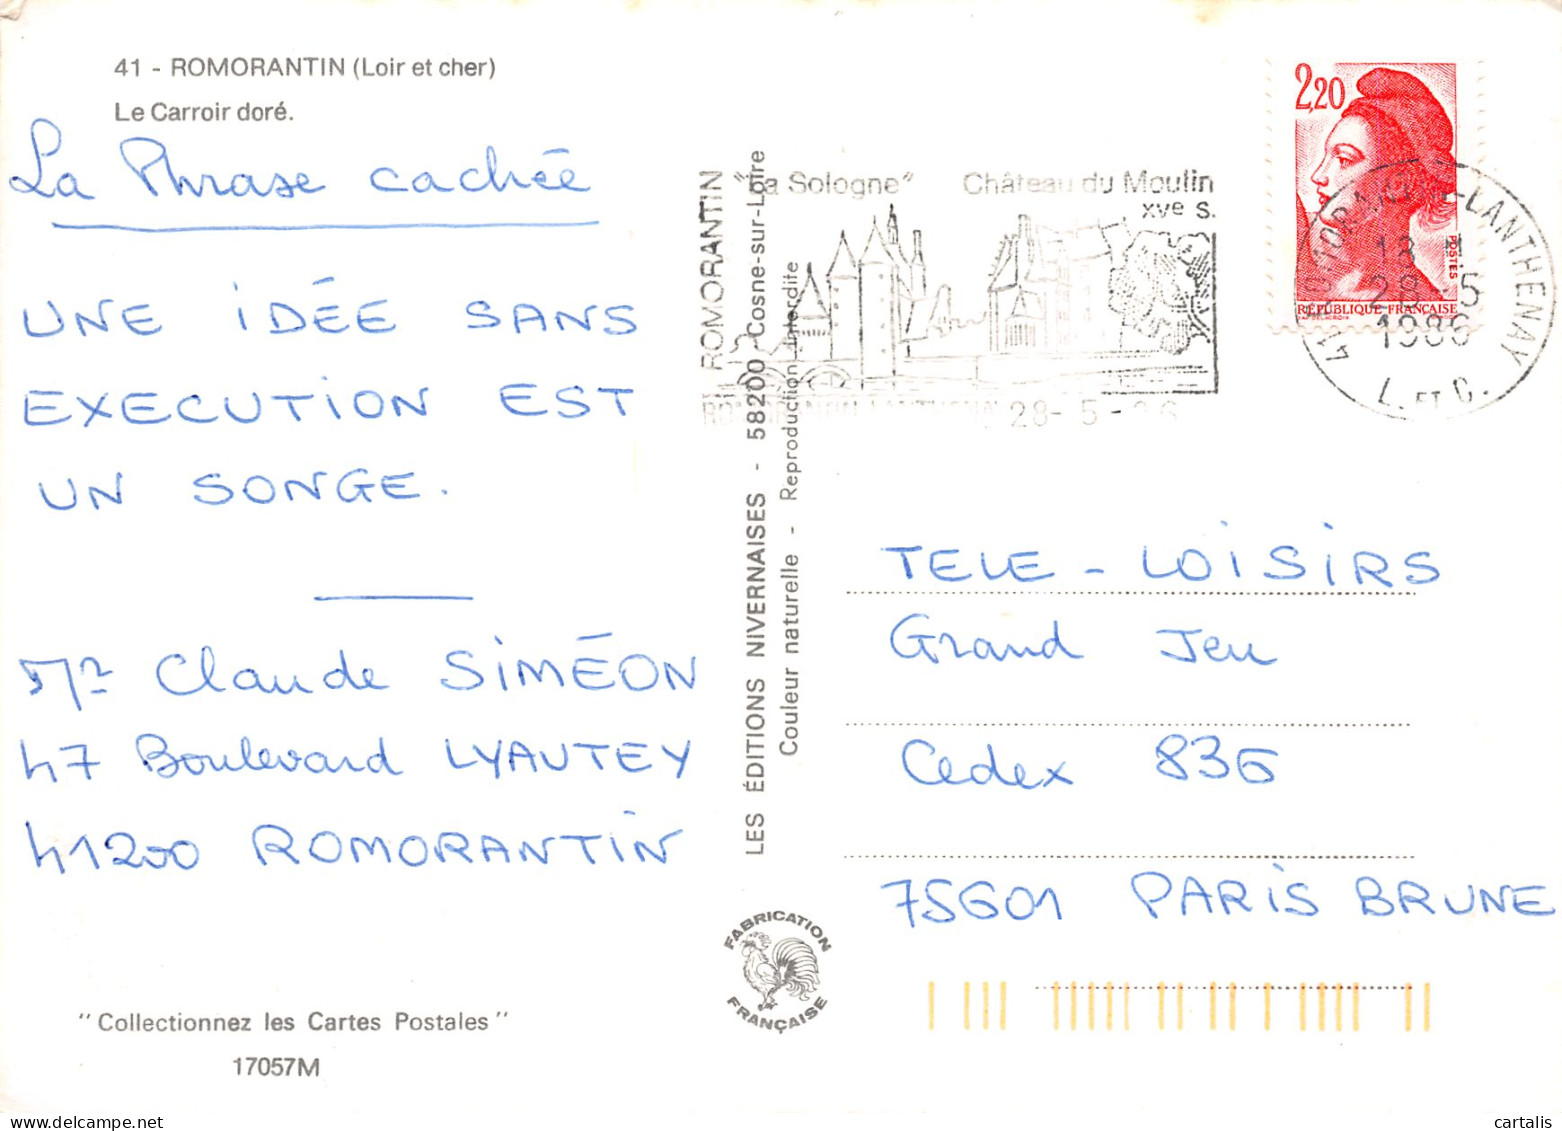 41 - ROMORANTIN (Loir et cher)
Le Carroir doré.
La Phrase cachée
UNE IDÉE SANS
EXECUTION EST
UN SONGE.
Mr Claude SIMÉON
47 Boulevard LYAUTEY
41200 ROMORANTIN
"Collectionnez les Cartes Postales"
17057M
LES ÉDITIONS NIVERNAISES - 58200 Cosne-sur-Loire
Couleur naturelle - Reproduction interdite
FABRICATION
FRANÇAISE
ROMORANTIN
"La Sologne" Château du Moulin
XVe S.
ROMORANTIN LANTHENAY 28-5-86
2,20
POSTES
RÉPUBLIQUE FRANÇAISE
41 ROMORANTIN-LANTHENAY
28-5
1986
L. ET C.
TELE - LOISIRS
Grand Jeu
Cedex 836
75601 PARIS BRUNE
cartalis